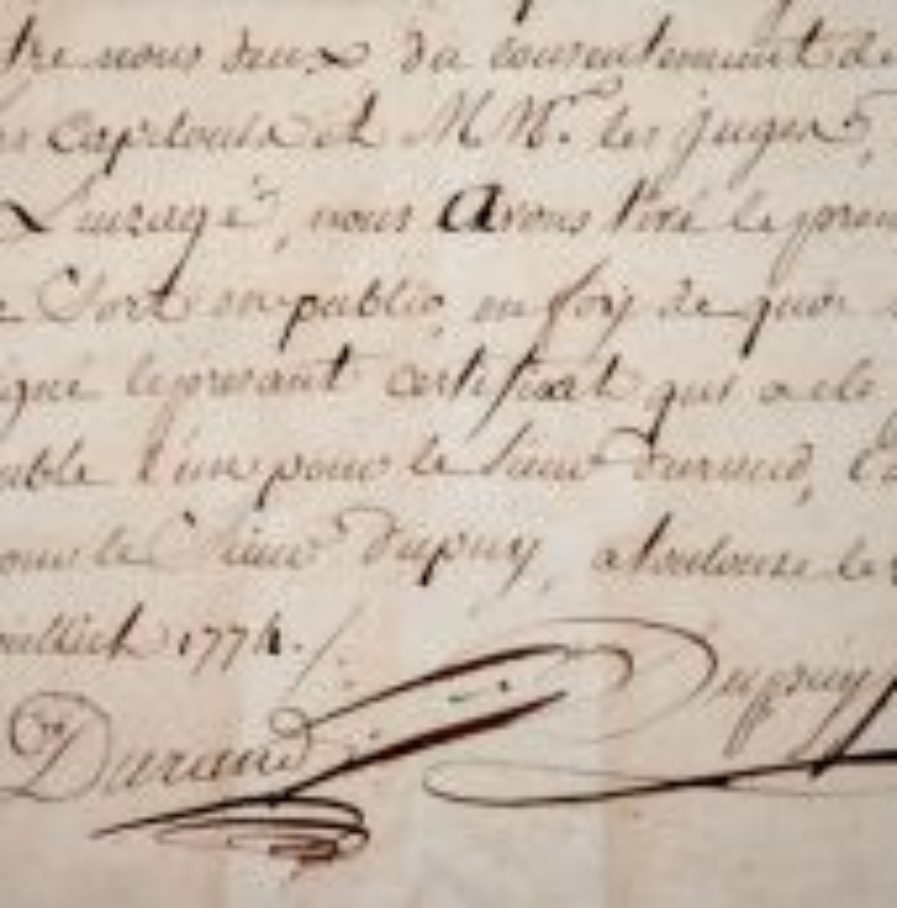 tre nous deux du consentement de
capitouls et MM.rs les juges
Lauragé, nous Avons tiré le prem
e Sort en public, en foy de quoi
igné le presant certificat qui a ete
uble l'un pour le sieur durand, l'a
our le Sieur Dupuy, a toulouse le
juillich 1774.
Durand Dupuy